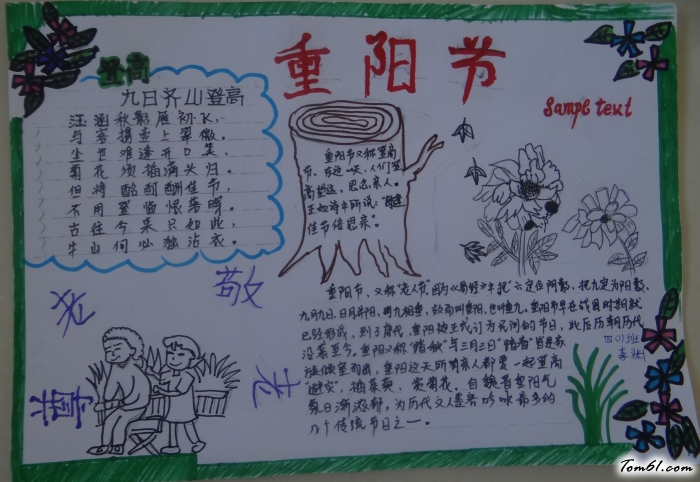 重阳节
登高
Sample text
九日齐山登高
江涵秋影雁初飞，
与客携壶上翠微。
尘世难逢开口笑，
菊花须插满头归。
但将酩酊酬佳节，
不用登临恨落晖。
古往今来只如此，
牛山何必独沾衣。
重阳节又称登高
节，在这一天，人们登
高望远，思念亲人。
正如诗中所说："每逢
佳节倍思亲"。
敬
老
尊
老
重阳节，又称"老人节"。因为《易经》中把"六"定位阴数，把九定为阳数，
九月九日，日月并阳，两九相重，故而叫重阳，也叫重九。重阳节早在战国时期就
已经形成，到了唐代，重阳被正式订为民间的节日，此后历朝历代
沿袭至今。重阳又称"踏秋"与三月三日"踏春"皆是家
族倾室而出，重阳这天所有亲人都要一起登高
避灾"，插茱萸、赏菊花。自魏晋重阳气
氛日渐浓郁，为历代文人墨客吟咏最多的
几个传统节日之一。
四(1)班
Tom61.com